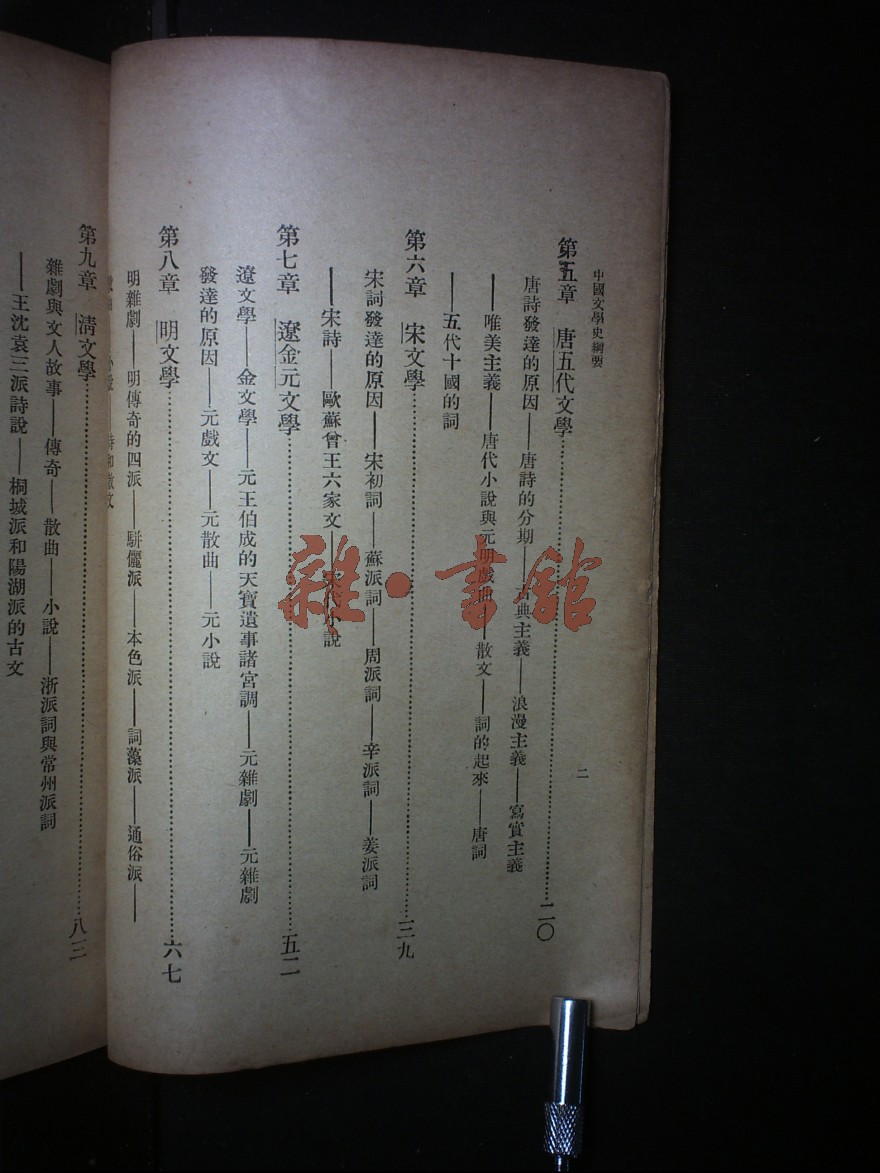 中國文學史綱要
二
第五章　唐五代文學…………二〇
唐詩發達的原因——唐詩的分期——古典主義——浪漫主義——寫實主義
——唯美主義——唐代小說與元明戲曲——散文——詞的起來——唐詞
——五代十國的詞
第六章　宋文學…………三九
宋詞發達的原因——宋初詞——蘇派詞——周派詞——辛派詞——姜派詞
——宋詩——歐蘇曾王六家文——宋代小說
第七章　遼金元文學…………五二
遼文學——金文學——元王伯成的天寶遺事諸宮調——元雜劇——元雜劇
發達的原因——元戲文——元散曲——元小說
第八章　明文學…………六七
明雜劇——明傳奇的四派——駢儷派——本色派——詞藻派——通俗派——
散文
第九章　清文學…………八三
雜劇與文人故事——傳奇——散曲——小說——浙派詞與常州派詞
——王沈袁三派詩說——桐城派和陽湖派的古文
雜·書館